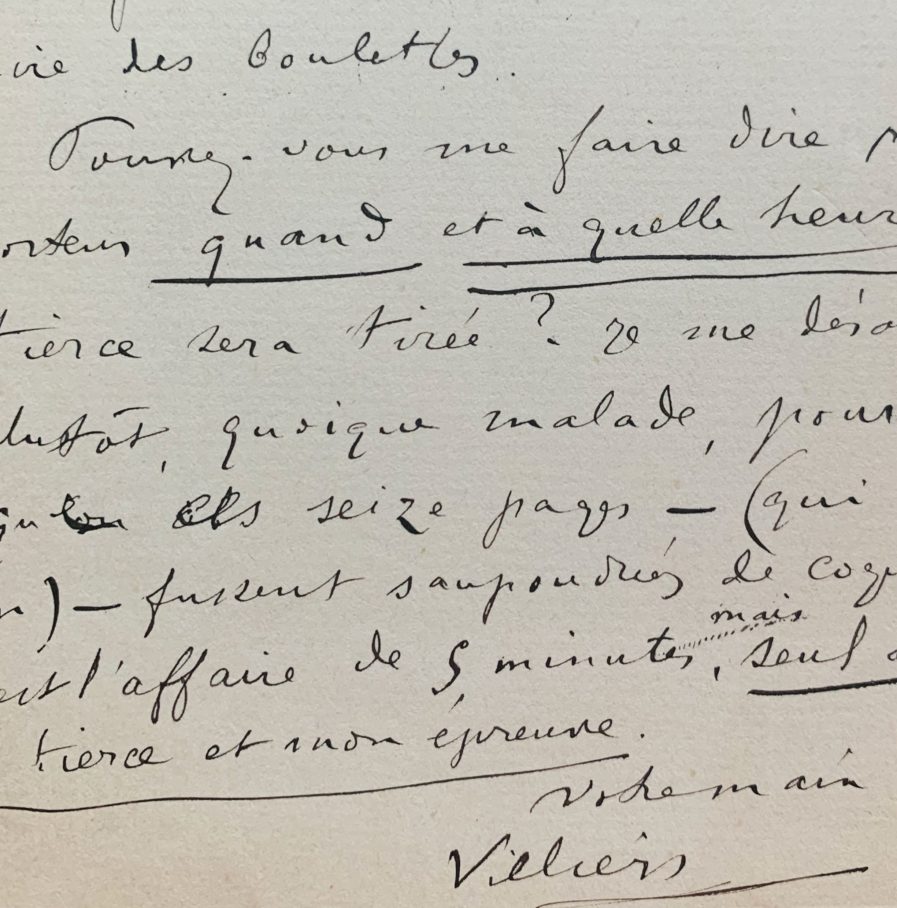 vie des boulettes.
Pourrez-vous me faire dire
porteur quand et à quelle heur
tierce sera tirée? Je me déso
plutôt, quoique malade, pour
seize pages — (qui
) — fussent saupoudrées de coqu
est l'affaire de 5 minutes, mais seul a
tierce et mon épreuve.
Votre main
Villiers